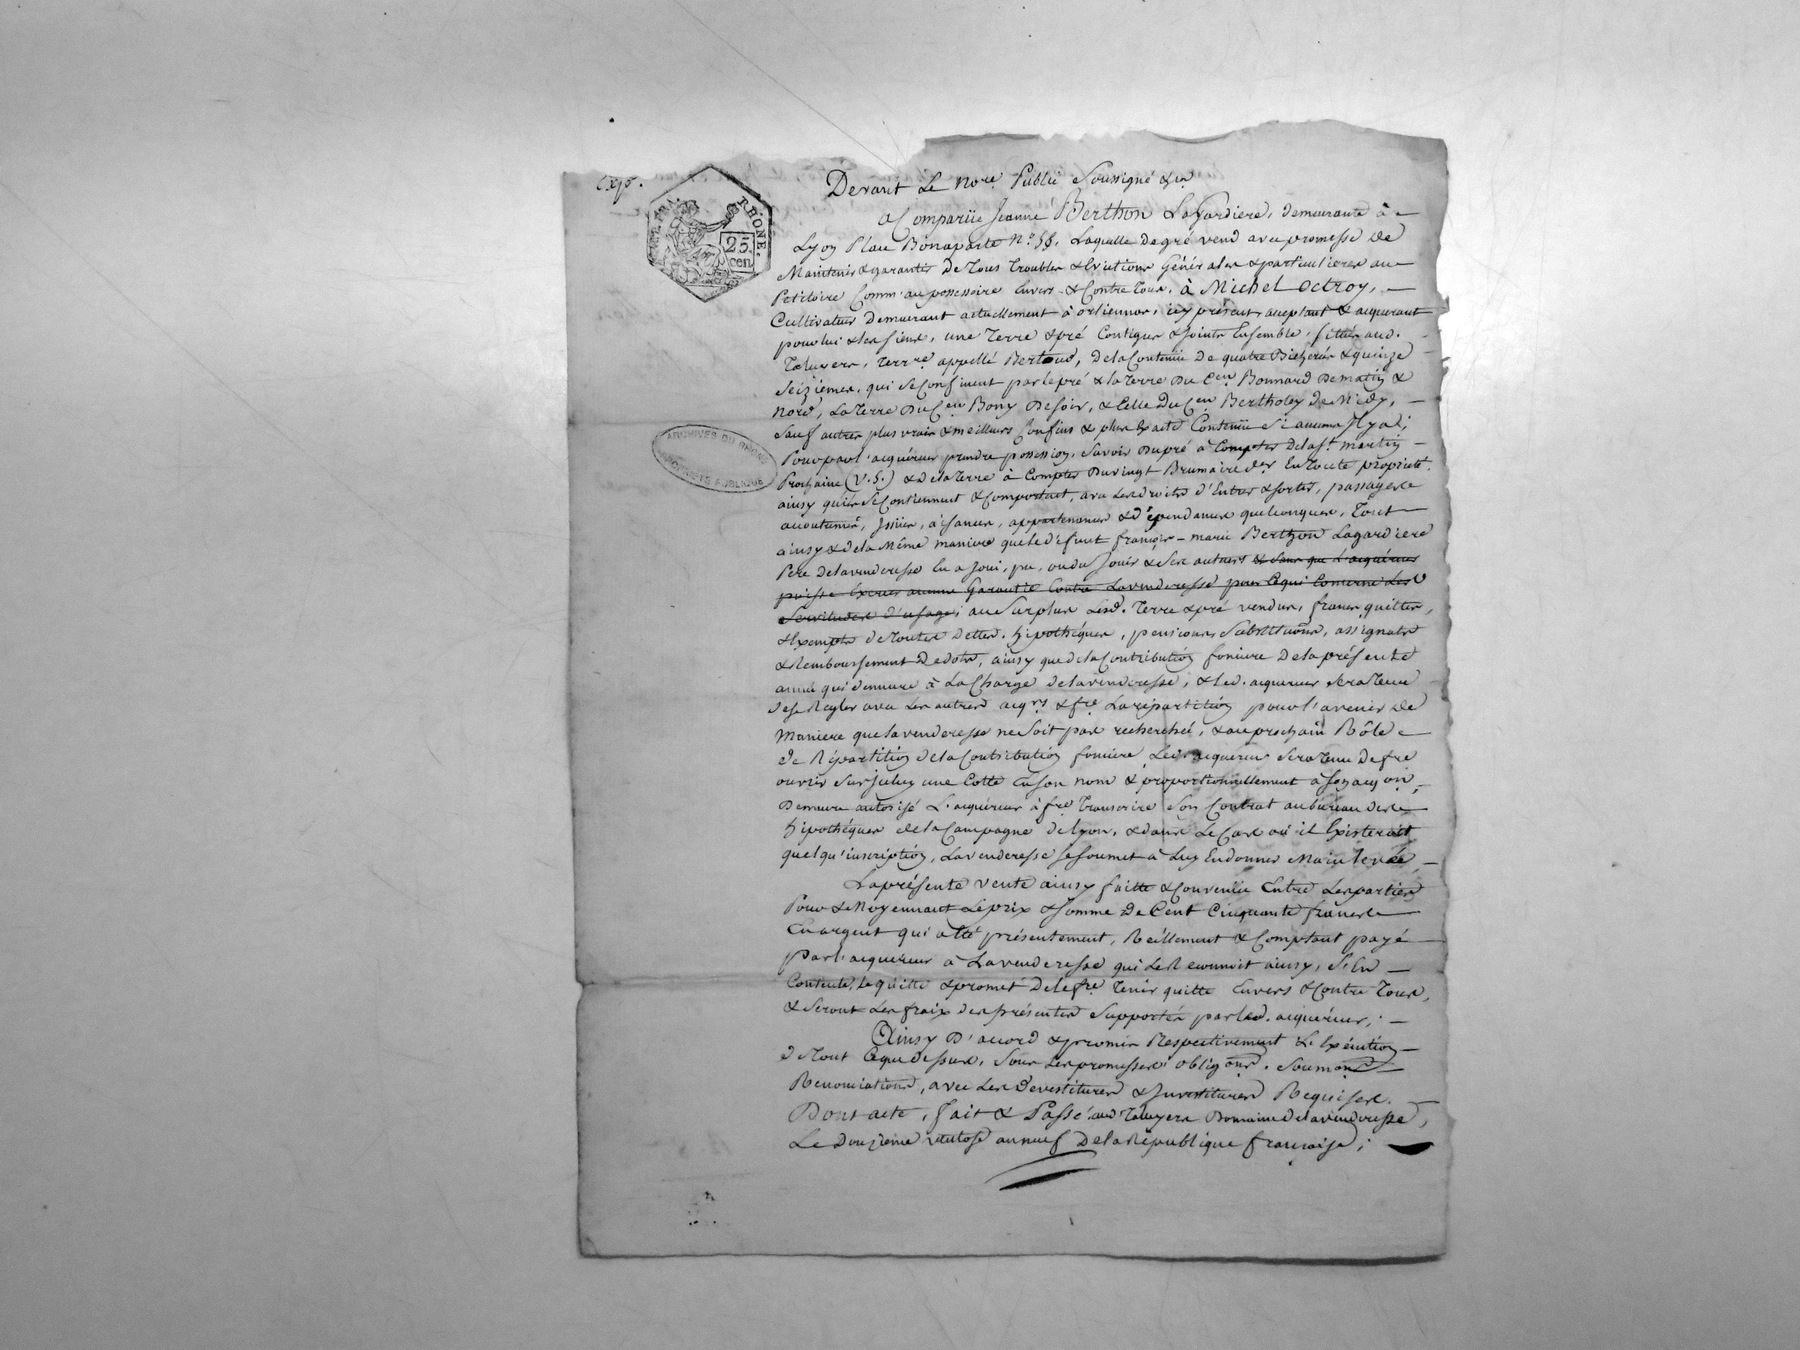 Exp.
RHÔNE.
25.
cen
ARCHIVES DU RHÔNE
PROPRIÉTÉ PUBLIQUE
Devant Le Nore. Public Soussigné &
a Comparüe Jeanne Berthon Lagardiere, demeurante à
Lyon Place Bonaparte No. 58. Laquelle de gré vend avec promesse de
Maintenir & garantir De Tous Troubles & Evictions Générales & particulieres au
Petitoire Comm'au possessoire Envers & Contre Tous, à Michel Octroy,
Cultivateur Demeurant actuellement à orliennas, icy présent acceptant & acquerant
pour lui & les siens, une Terre & pré Contigus & Joints Ensemble, sittués aud.
Taluyers, Terrre. appellé Bertoud, de la Contenüe De quatre Bicherées & quinze
Seiziemes, qui se Confinent par le pré & la Terre Du Cen. Bonnard De matin &
Nord, La Terre Du Cen. Bony De soir, & Celle Du Cen. Bertholey de Midy,
Sauf autres plus vrais & meilleurs Confins & plus Exacte Contenüe Si aucuns Il y a;
Pour par l'acquéreur prendre possession, savoir Du pré à Compter De la St. martin
Prochaine (V.S.) & De la Terre à Compter Du vingt Brumaire der. En Toute propriété,
ainsy qu'ils se Contiennent & Comportent, avec les droits d'Entrer & sortir, passages
accoutumés, Issües, aisances, appartenances & dépendances quelconques, Tout
ainsy & de la Même maniere que le défunt françois-marie Berthon Lagardiere
Pere de la venderesse En a Joui, pu, ou du Jouir & ses auteurs & sans que l'acquéreur
puisse Exercer aucune Garantie Contre La venderesse pour Ce qui Concerne Les
Servitudes d'usage; au Surplus Lesd. Terre & pré vendus, francs, quittes,
& Exempts de Toutes Dettes, hipothéques, pensions, Substitutions, assignats
& Remboursement De dots, ainsy que de la Contribution fonciere De la présente
année qui demeure à La Charge de la venderesse, & led. acquereur sera Tenu
de se Regler avec Les autres acqrs. & fre. La répartition pour l'avenir de
Maniere que la venderesse ne Soit pas recherchée, & au prochain Rôle
de Répartition de la Contribution fonciere Led. acquereur sera Tenu de fre
ouvrir Sur Jceluy une Cotte En son nom & proportionnellement à son acqon,
Demeure autorisé L'acquéreur à fre. Transcrire Son Contrat au bureau des
hipothéques de la Campagne de Lyon, & dans Le Cas où il Existeroit
quelqu'inscription, La venderesse se soumet à Luy En donner Main levée,
La présente vente ainsy faitte & Convenüe Entre Les parties
Pour & Moyennant Le prix & Somme De Cent Cinquante francs
En argent qui a Eté présentement, Réellement & Comptant payé
par l'acquereur à La venderesse qui Le Reconnoit ainsy, s'En
Contente, Le quitte & promet De le fre. Tenir quitte Envers & Contre Tous,
& Seront Les fraix des présentes Supportés par led. acquéreur;
Ainsy D'accord & promis Respectivement L'Exécution
de Tout Ce que dessus, Sous Les promesses obligons. Soumons
Renonciations, avec Les devestitures & Investitures Requises.
Dont acte, fait & Passé aud. Taluyers Domaine de la venderesse,
Le Douzieme ventose an neuf De la République francaise;